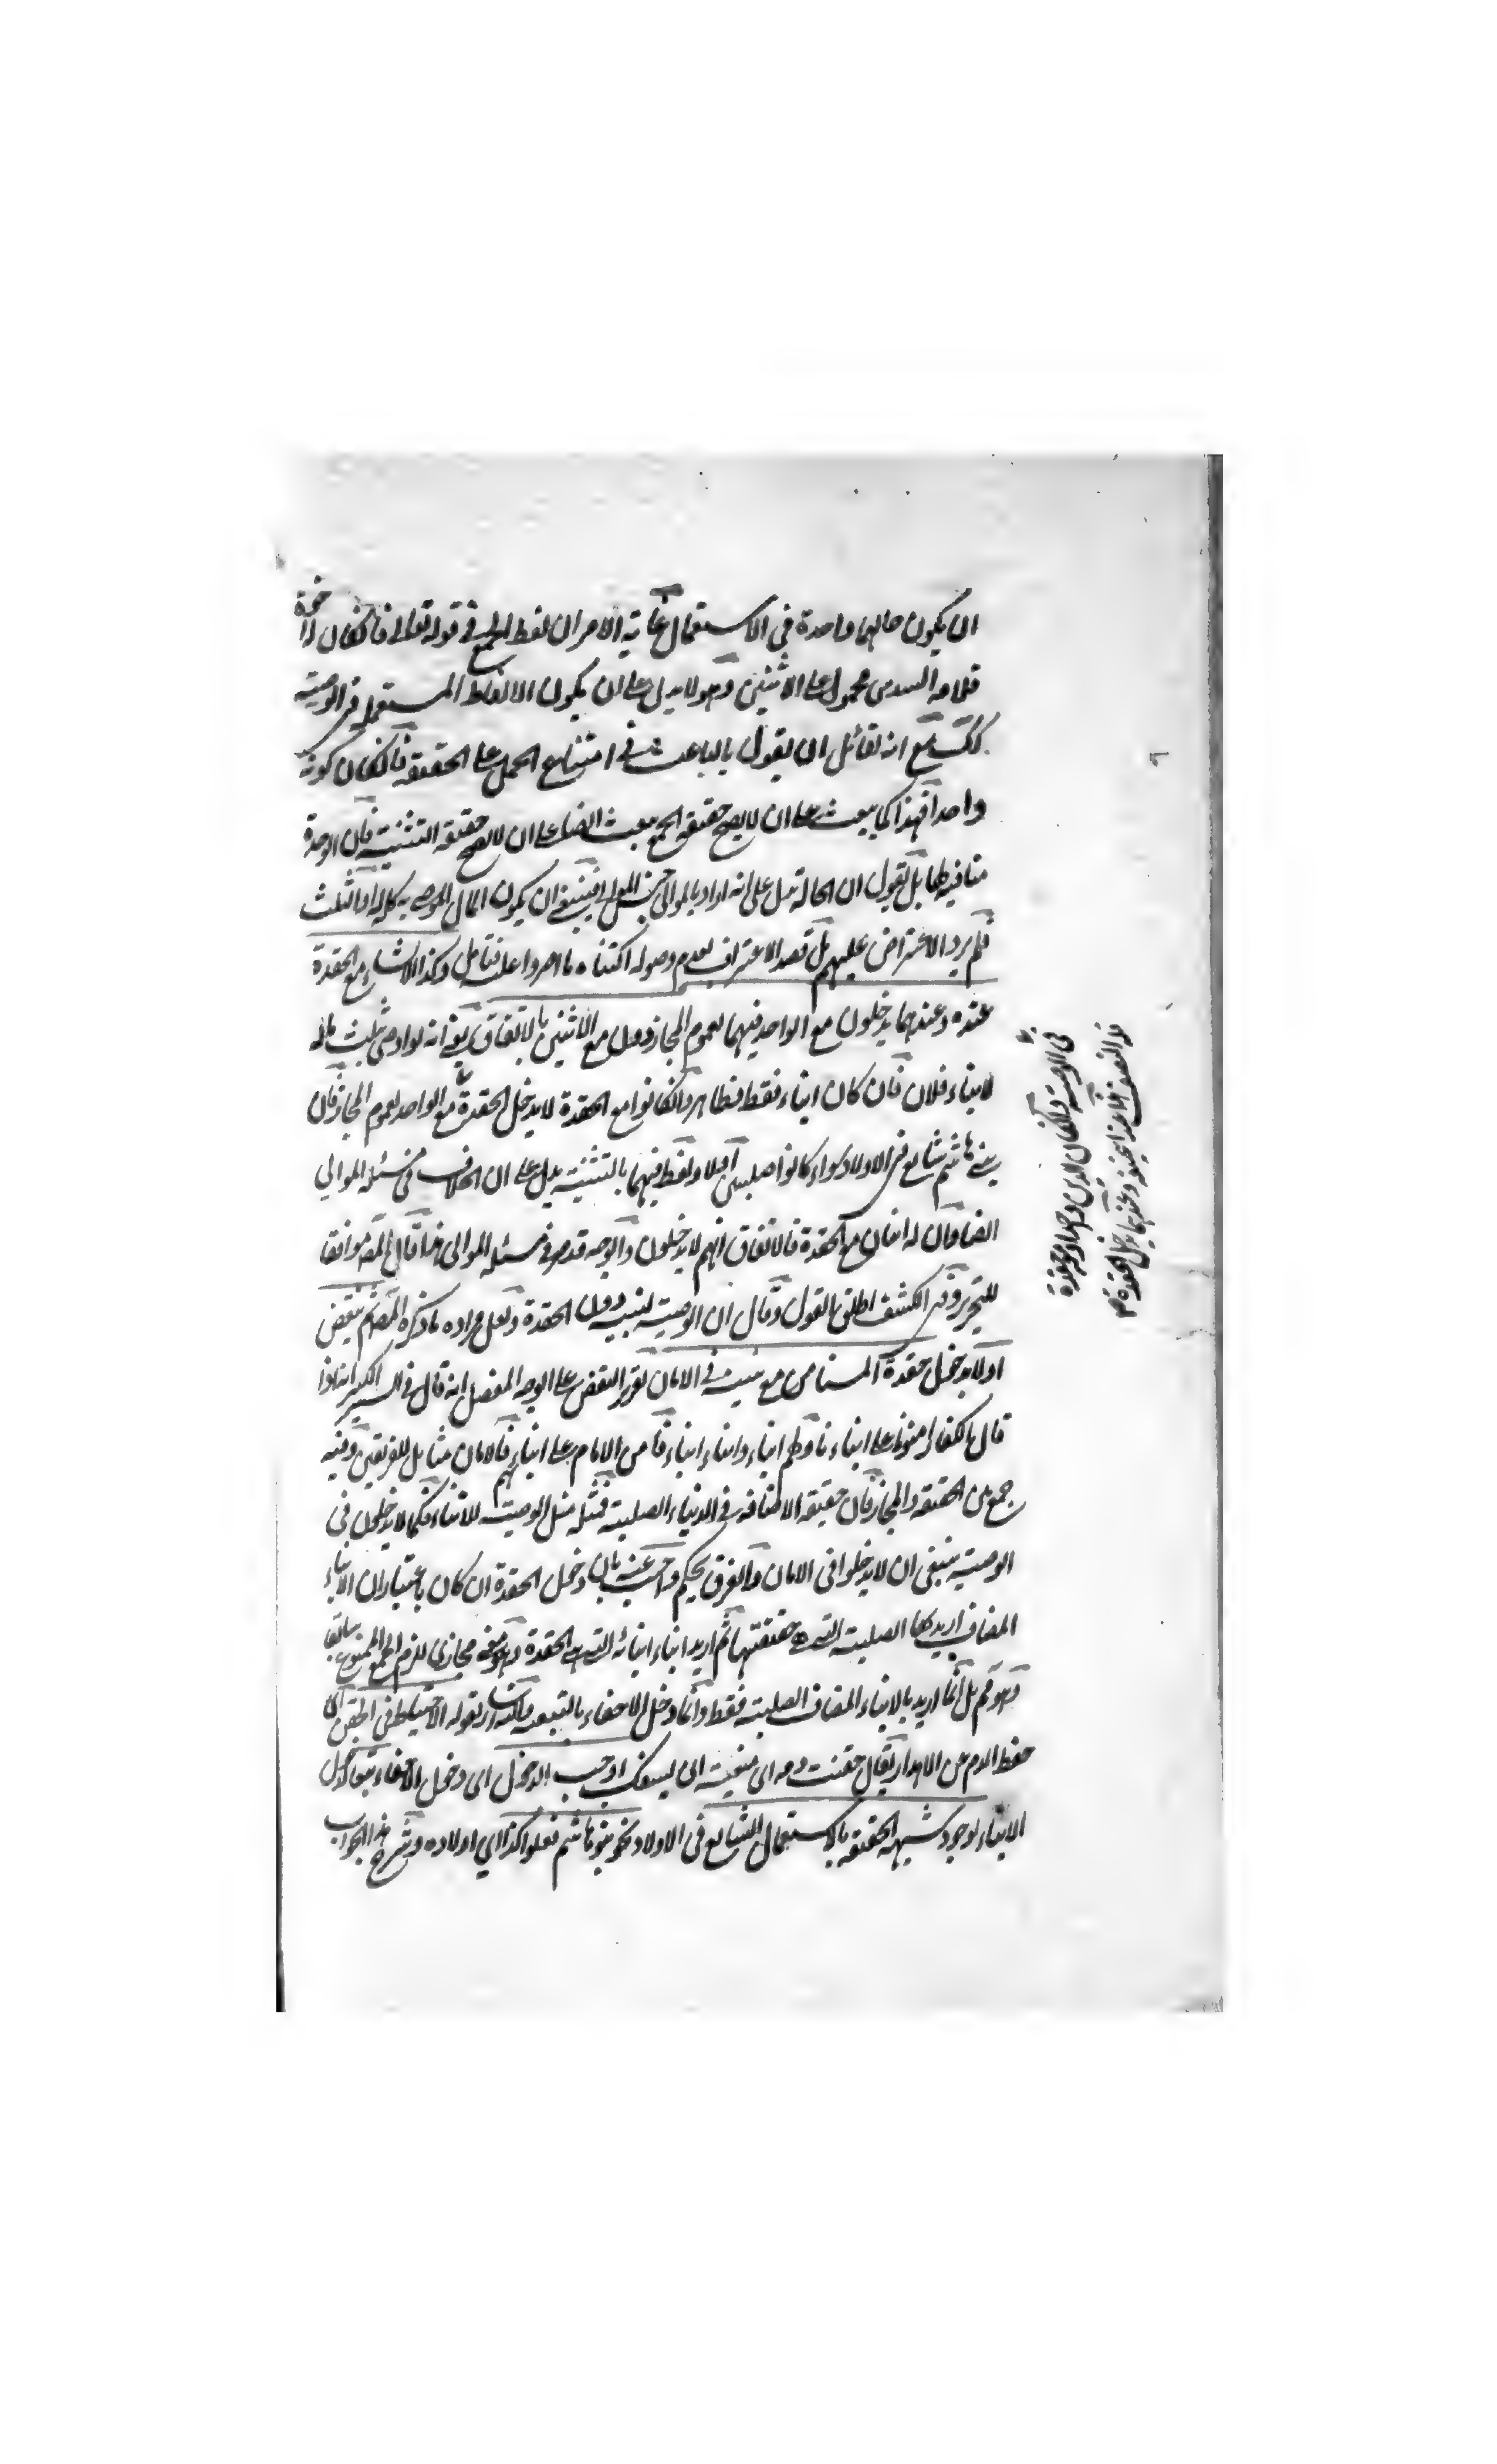 ان يكون حالهما واحدة في الاستعمال غاية الامر ان لفظ الجمع في قوله تعالى فان كان له اخوة
فلامه السدس محمول على الاثنين وهو لا يدل على ان يكون الالفاظ المستعملة في الوصية
كك مع انه لقائل ان يقول بالباعث في امتناع الحمل على الحقيقة فان كان كونه
واحدا فهذا كما يبعث على ان لا يصح حقيقة الجمع يبعث ايضا على ان لا يصح حقيقة التثنية فان الوحدة
منافية لهما بل نقول ان الحالة تدل على انه اراد بالموالي جنس المولى فينبغي ان يكون المال الموصى به كله او الثلث
فلم يرد الاعتراض عليهم بل قصد الاعتراف بعدم وصوله اكتناه ما اصروا عليه فتامل وكذا الابناء مع الحفدة
عنده وعندهما يدخلون مع الواحد فيهما لعموم المجاز دون مع الاثنين بالاتفاق يعني انه لو اوصى بثلث ماله
لابناء فلان فان كان ابناء فقط فظاهر وان كانوا مع الحفدة لا يدخل الحفدة مع الواحد لعموم المجاز فان
بني هاشم شايع في الاولاد سواء كانوا صلبيين او لا ولفظ فيهما بالتثنية يدل على ان الخلاف في مسئلة الموالي
ايضا وان له ابنان مع الحفدة فالاتفاق انهم لا يدخلون والوجه قد مر في مسئلة الموالي هذا قال المصـ موافقا
للتحرير وفي الكشف اطلق القول وقال ان الوصية لبنيه دون الحفدة ولعل مراده ما ذكره المصـ ثم ينقض
اولا بدخول حفدة المستامن مع بنيه في الامان تقرير النقض على الوجه المفصل انه قال في السير الكبير انه اذا
قال الكفار امنونا على ابناءنا ولهم ابناء وابناء ابناء فامن الامام على ابنائهم فالامان شامل للفريقين وفيه
جمع بين الحقيقة والمجاز فان حقيقة الاضافة في الابناء الصلبية فمثله مثل الوصية للابناء فكما لا يدخلون في
الوصية ينبغي ان لا يدخلوا في الامان والفرق تحكم واجيب عنه بان دخول الحفدة ان كان باعتبار ان الابناء
المضاف اريد بها الصلبية التي هي حقيقتها ثم اريد ابناء ابنائه التي هي الحفدة وهو معنى مجازي للزم الجمع الممنوع سابقا
وهو مم بل انما اريد بالابناء المضاف الصلبية فقط وانما دخل الاحفاد بالتبعية واليه اشار بقوله الاحتياط في الحقن اي
حفظ الدم عن الاهدار يقال حقنت دمه اي منعته ان يسفك اوجب الدخول اي دخول الاحفاد تبعا لدخول
الابناء لوجود شبهة الحقيقة بالاستعمال الشايع في الاولاد نحو بنو هاشم فعلوا كذا اي اولاده وشرح هذا الجواب
في الوصية
فلا النصف فقط عند ابي حنيفة وعندهما يدخل الحفدة